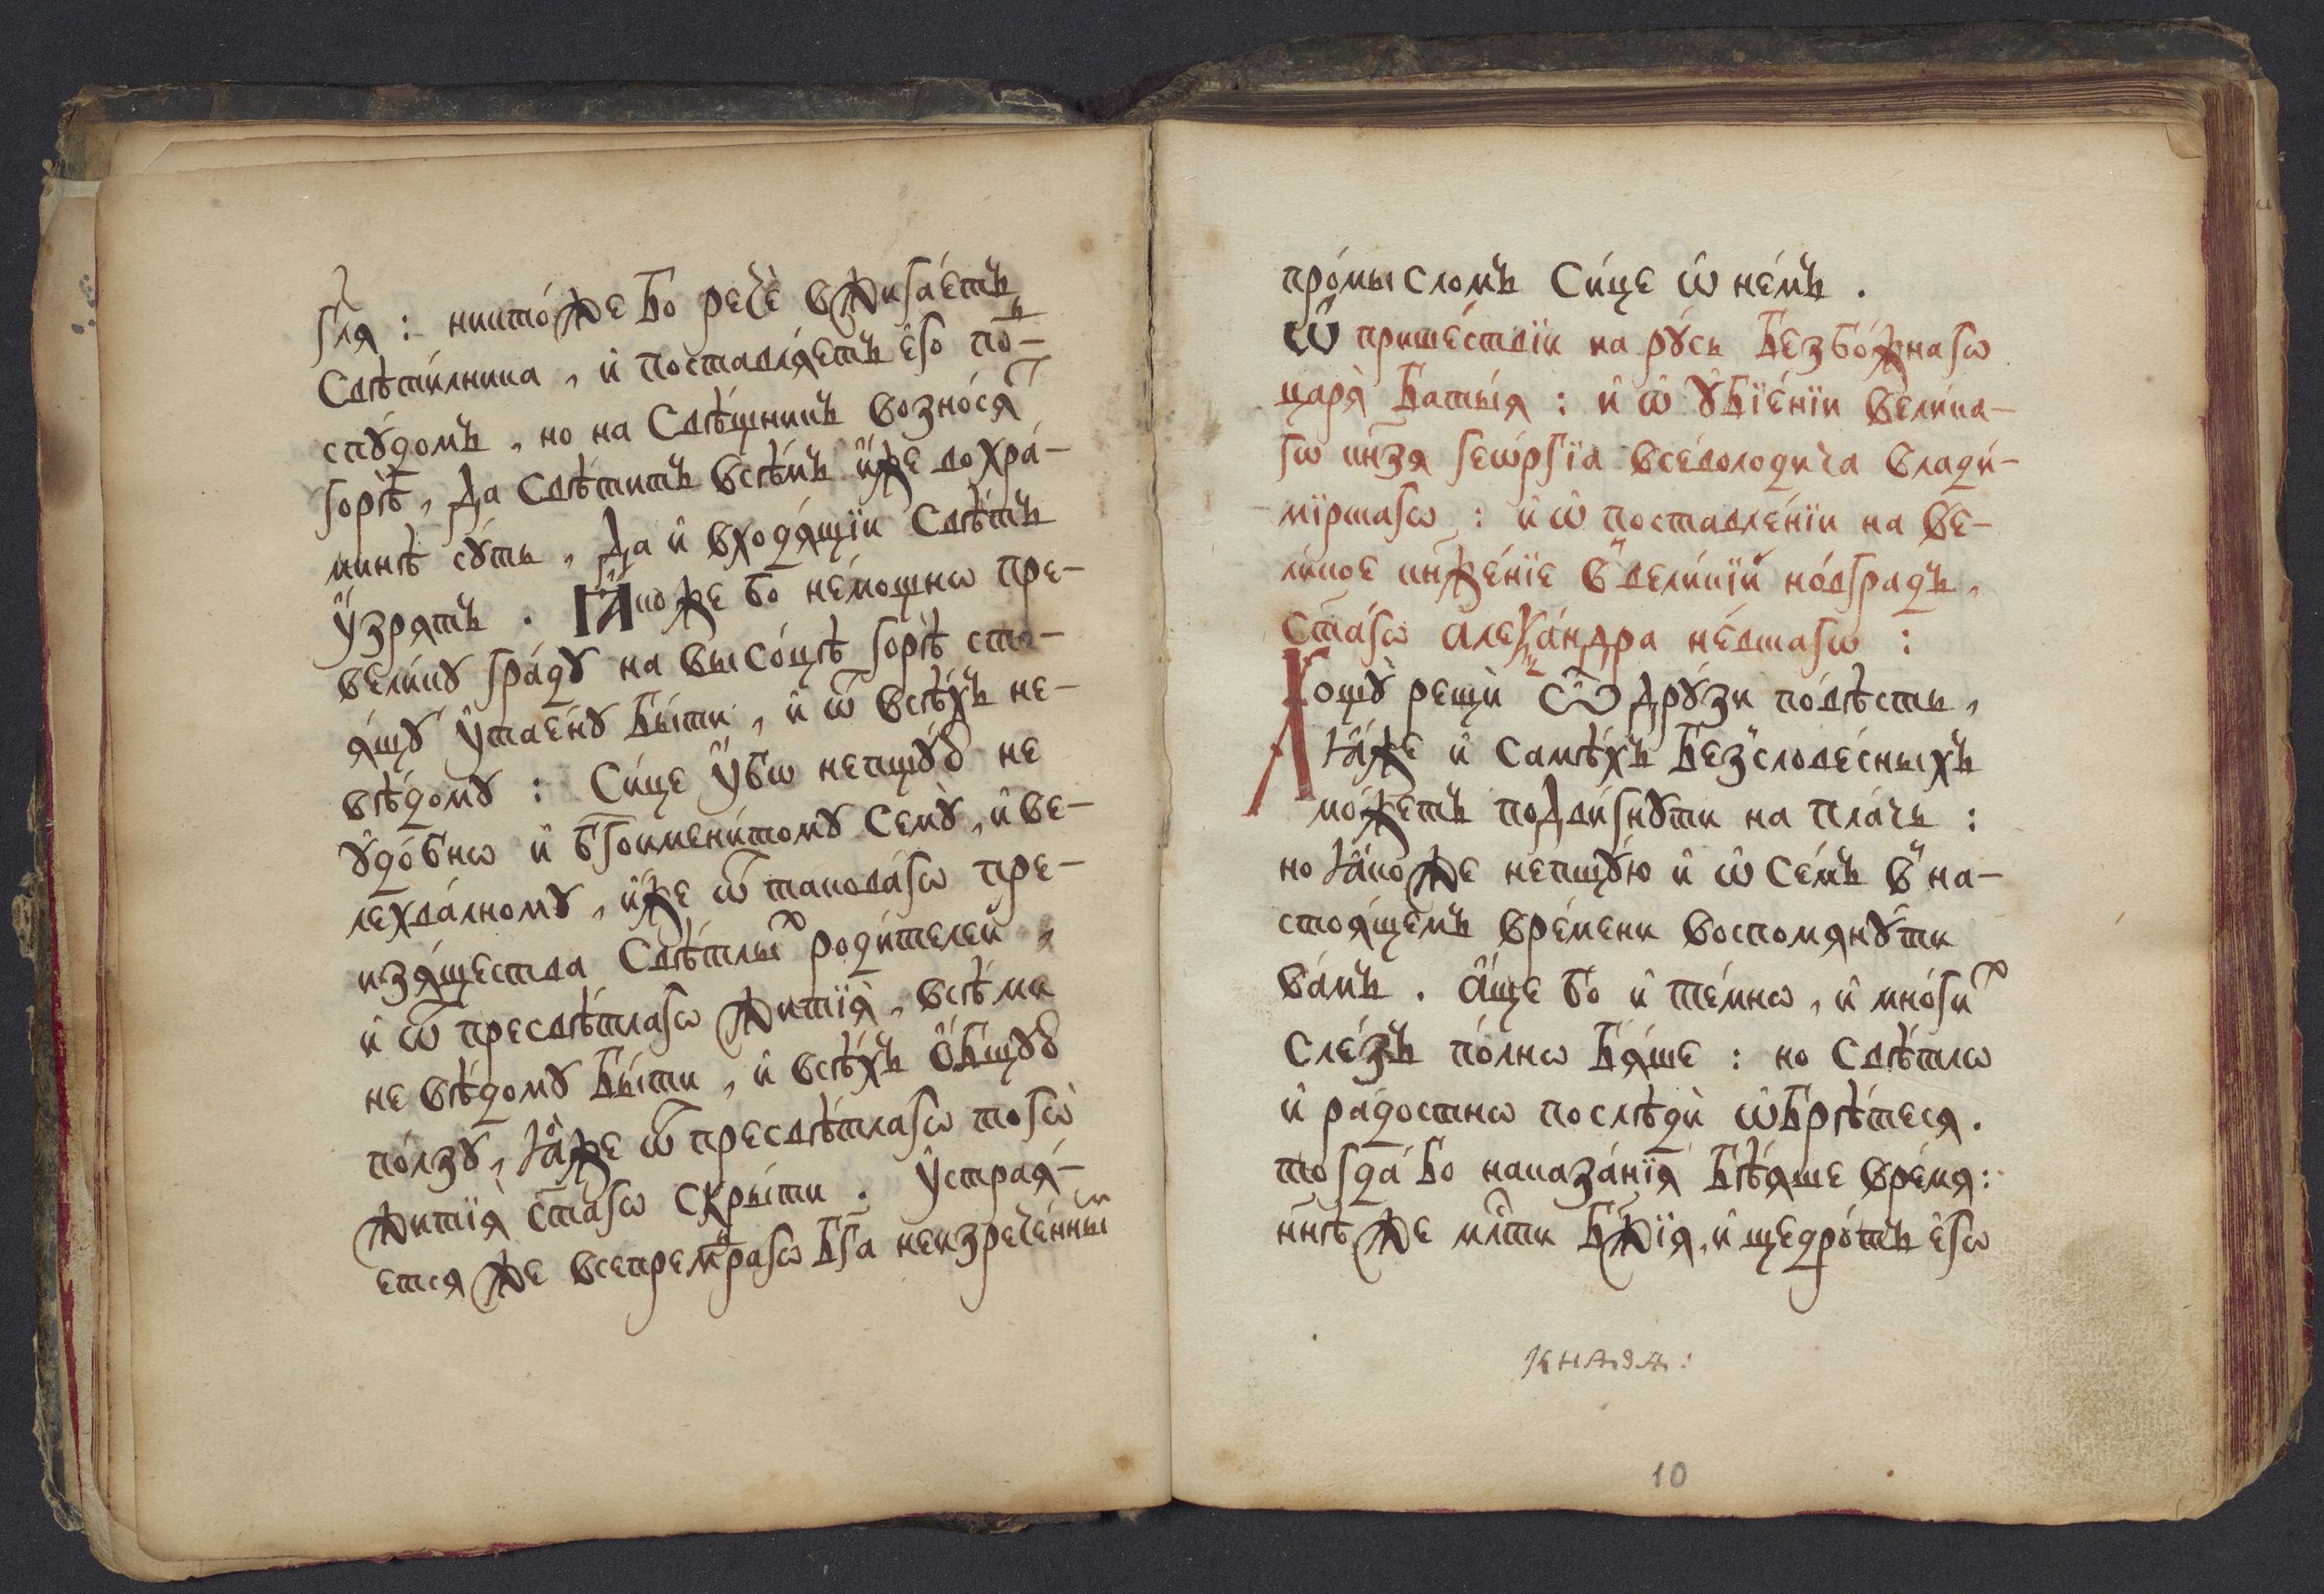 гл҃я : никто́же бо речѐ вжига́етъ
свѣти́лника , и҆ поставлѧ́етъ є҆го̀ под̾-
спꙋ́домъ , но на свѣ́щникъ возно́сѧт̾
горѣ̀ , да свѣ́титъ всѣ́мъ и҆́же во хра́-
минѣ сꙋ́ть , да и҆ входѧ́щїи свѣ́тъ
у҆́зрѧтъ . Ꙗ҆́коже бо не мо́щнѡ пре-
вели́кꙋ гра́дꙋ на высо́цѣ горѣ̀ сто-
ѧ́щꙋ у҆тае́нꙋ бы́ти , и҆ ѿ всѣ́хъ не-
вѣ́домꙋ : Си́це у҆́бѡ непщꙋ́ю не
ᲂудо́бнѡ и҆ бг҃оимени́томꙋ семꙋ̀ , и҆ ве-
лехва́лномꙋ , и҆́же ѿ такова́гѡ пре-
изѧ́щества свѣ́тлых̾ роди́телей ,
и҆ ѿ пресвѣ́тлагѡ житїѧ̀ , всѣ́ми
не вѣ́домꙋ бы́ти , и҆ всѣ́хъ ѻ҆́бщꙋю
по́лзꙋ , ꙗ҆́же ѿ пресвѣ́тлагѡ тогѡ̀
житїѧ̀ ст҃а́гѡ скры́ти . Ꙋ҆страѧ́-
етсѧ же всепрем҃драгѡ бг҃а неизрече́нным̾
про́мысломъ си́це ѡ҆ не́мъ .
Ѡ҆ прише́ствїи на рꙋ́сь безбо́жнагѡ
царѧ̀ Баты́ѧ : и҆ ѡ҆ ᲂубїе́нїи вели́ка-
гѡ кн҃зѧ геѡ́ргїа всеволодича влади́-
мірскагѡ : и҆ ѡ҆ поставле́нїи на ве-
ли́кое кн҃же́нїе в̾ вели́кїй но́вградъ ,
ст҃а́гѡ алеѯа́ндра не́вскагѡ :
Хощꙋ̀ рещѝ Ѽ дрꙋ́зи по́вѣсть ,
ꙗ҆́же и҆ самѣ́хъ без̾слове́сныхъ
мо́жетъ подви́гнꙋти на пла́чь :
но ꙗ҆́коже непщꙋ́ю и҆ ѡ҆ се́мъ в̾ на-
стоѧ́щемъ вре́мени воспомѧнꙋ́ти
ва́мъ . А҆́ще бо и҆ те́мнѡ , и҆ мно́гих̾
сле́зъ по́лнѡ бѧ́ше : но свѣ́тлѡ
и҆ ра́достнѡ послѣдѝ ѡ҆брѣ́тесѧ .
тогда́ бо наказа́нїѧ бѣ́ѧше вре́мѧ :
нн҃ѣ же мл҃ти бж҃їѧ , и҆ щедро́тъ є҆гѡ̀
кнѧзѧ :
10